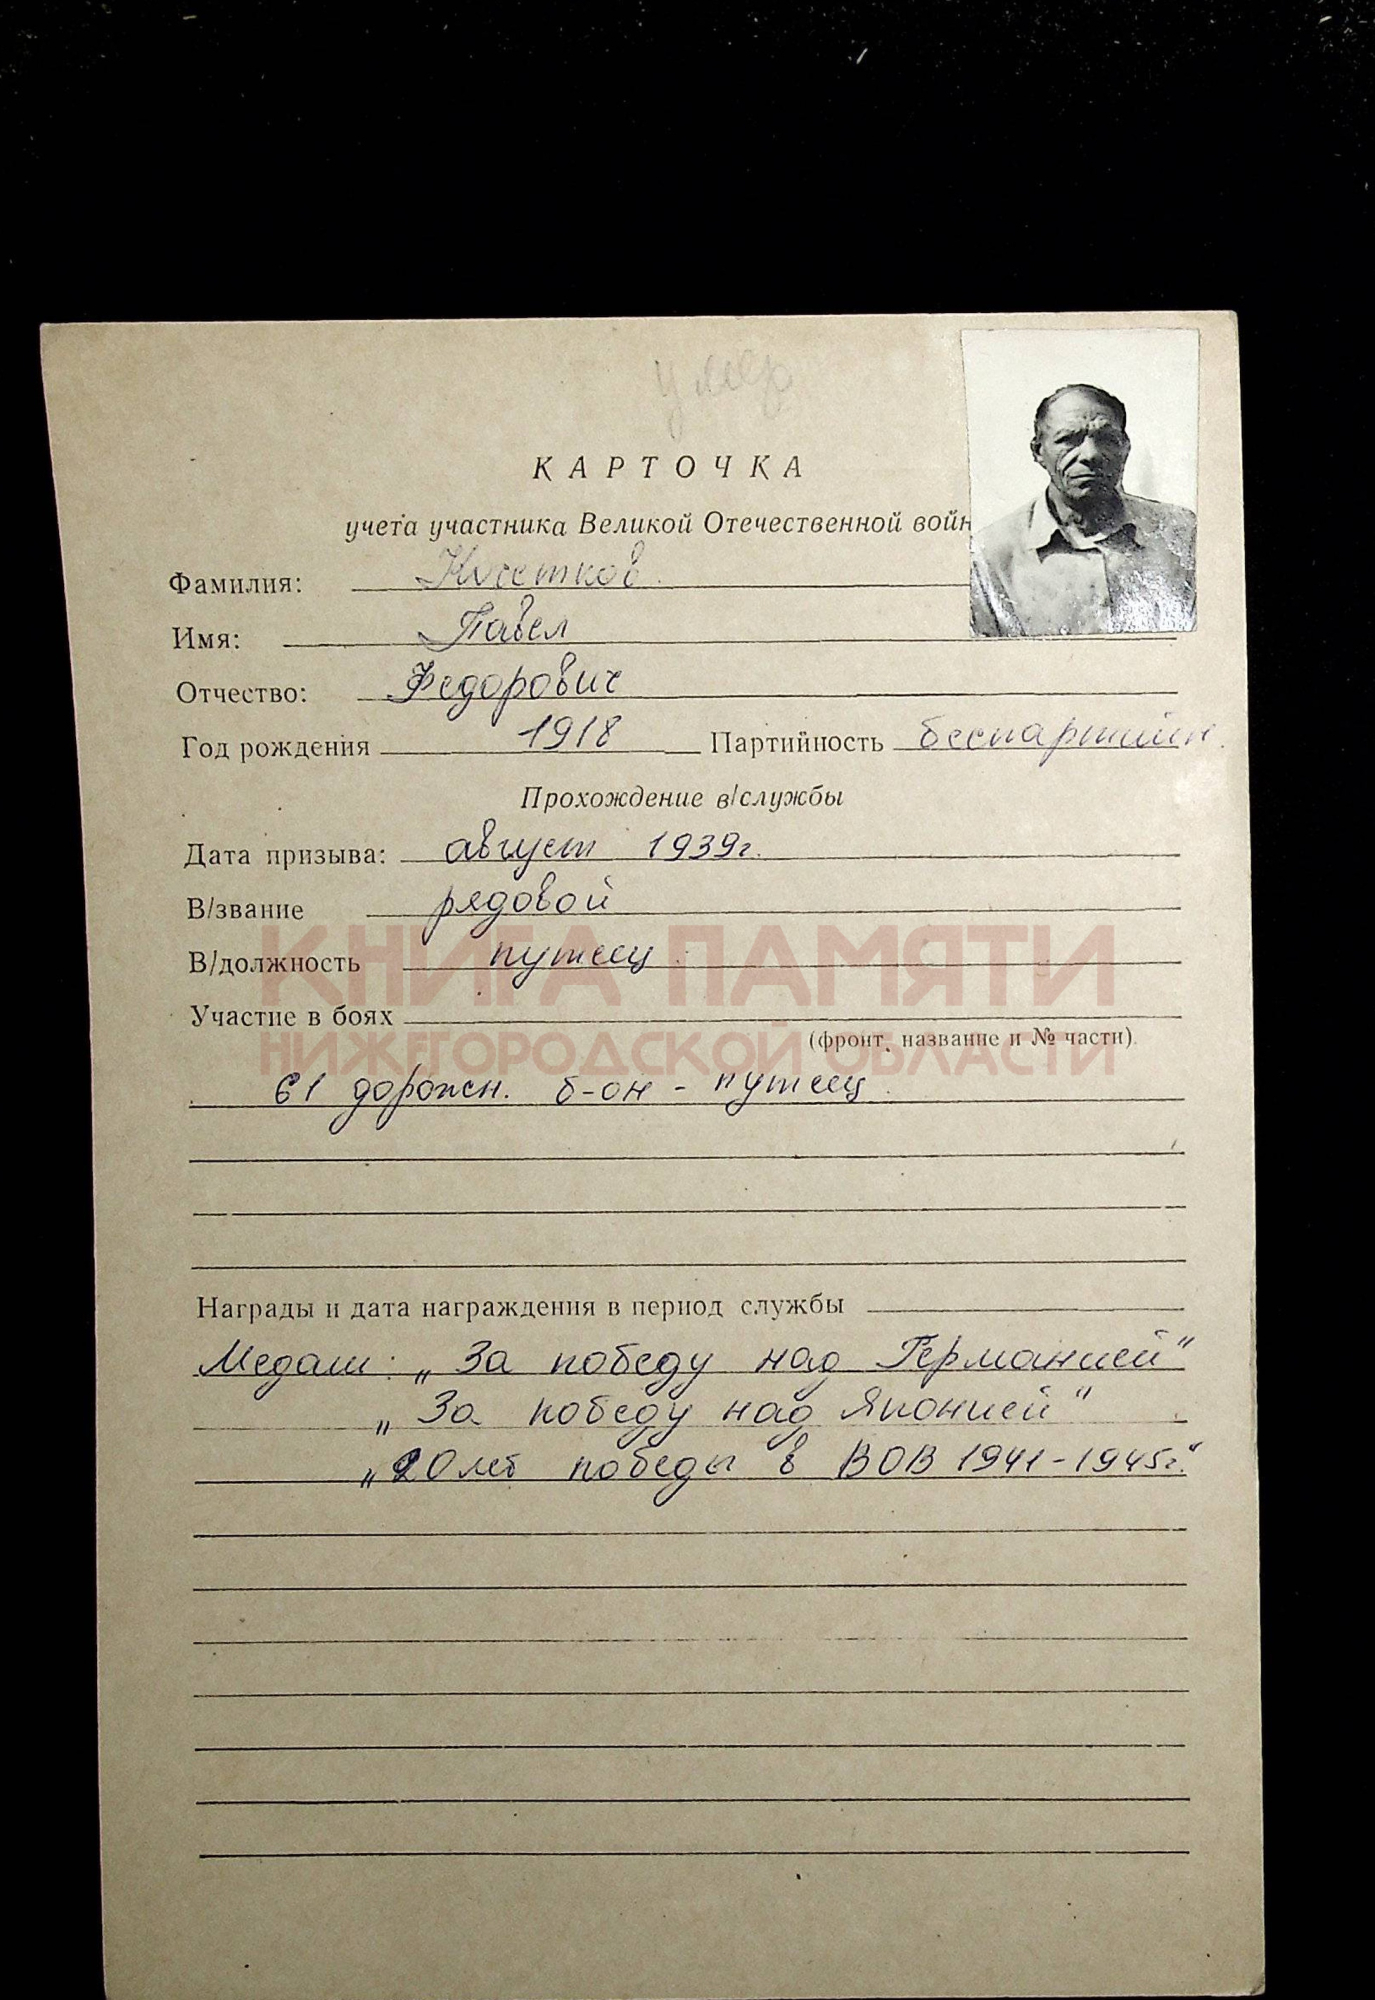 умер
КАРТОЧКА
учета участника Великой Отечественной войн
Фамилия:
Имя: Павел
Отчество: Федорович
Год рождения 1918 Партийность беспартийн.
Прохождение в/службы
Дата призыва: август 1939г.
В/звание рядовой
В/должность путеец
КНИГА ПАМЯТИ
Участие в боях
(фронт, название и № части)
НИЖЕГОРОДСКОЙ ОБЛАСТИ
61 дорожн. б-он - путеец
Награды и дата награждения в период службы
Медали: „За победу над Германией"
„За победу над Японией"
„20 лет победы в ВОВ 1941-1945г."